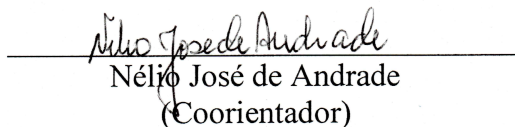 Nélio José de Andrade
Nélio José de Andrade
(Coorientador)